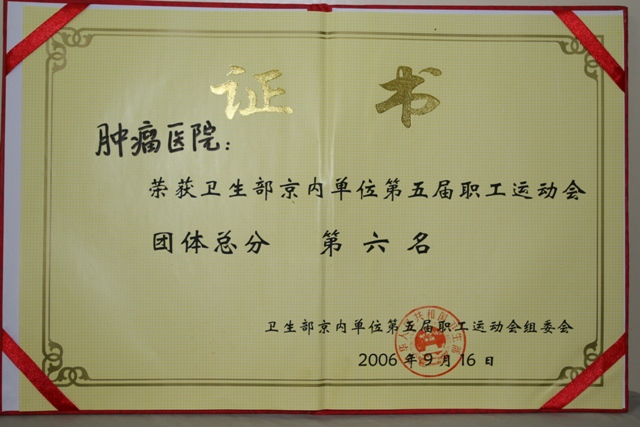 证书
肿瘤医院：
荣获卫生部京内单位第五届职工运动会
团体总分 第六名
卫生部京内单位第五届职工运动会组委会
2006年9月16日